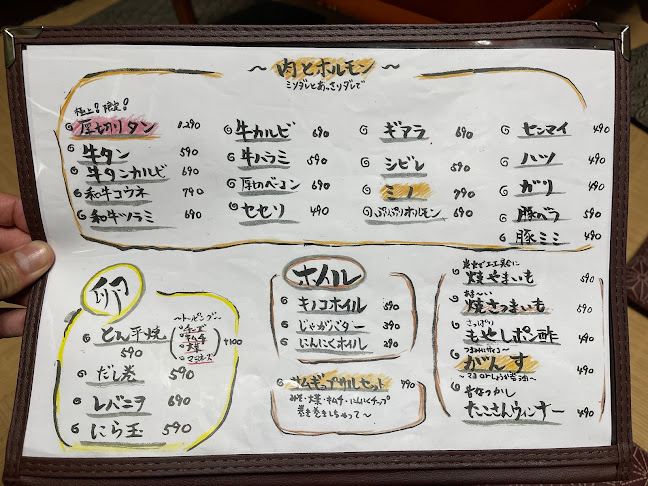 ～肉とホルモン～
ミソダレとあっさりダレで
極上！限定！
厚切りタン 1.290
牛タン 590
牛タンカルビ 690
和牛コウネ 790
和牛ツラミ 690
牛カルビ 690
牛ハラミ 590
厚切ベーコン 690
セセリ 490
ギアラ 690
シビレ 590
ミノ 790
ぷりぷりホルモン 690
センマイ 490
ハツ 490
ガリ 490
豚バラ 590
豚ミミ 490
卵
とん平焼 590
～トッピング～
チーズ
キムチ
大葉
マヨネーズ
+100
だし巻 590
レバニラ 690
にら玉 590
ホイル
キノコホイル 590
じゃがバター 390
にんにくホイル 290
サムギョプサルセット 990
みそ・大葉・キムチ・にんにくチップ
巻き巻きしちゃって～
焼やまいも 590
焼さつまいも 590
さっぱり
もやしポン酢 490
がんす 490
昔なつかし
たこさんウィンナー 490